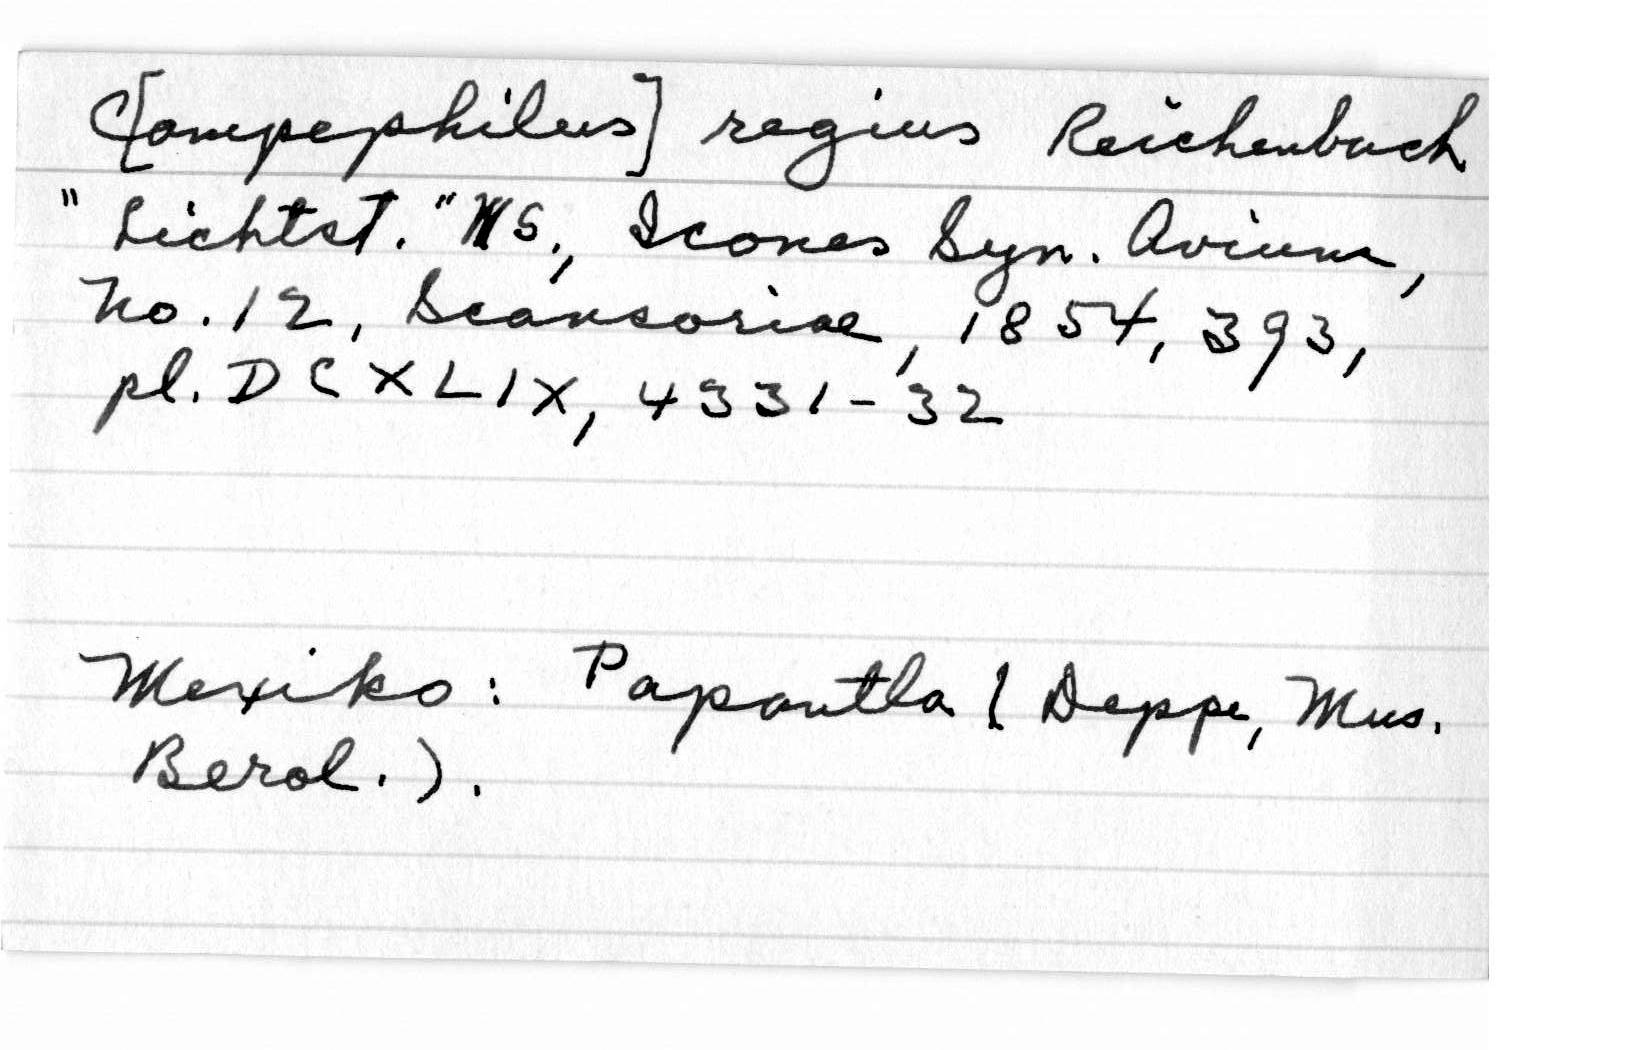 C[ampephilus] regius Reichenbach
"Lichtst." MS., Icones Syn. Avium,
No. 12, Scansoriae, 1854, 393,
pl. DCXLIX, 4331-32
Mexiko: Papantla (Deppe, Mus.
Berol.).